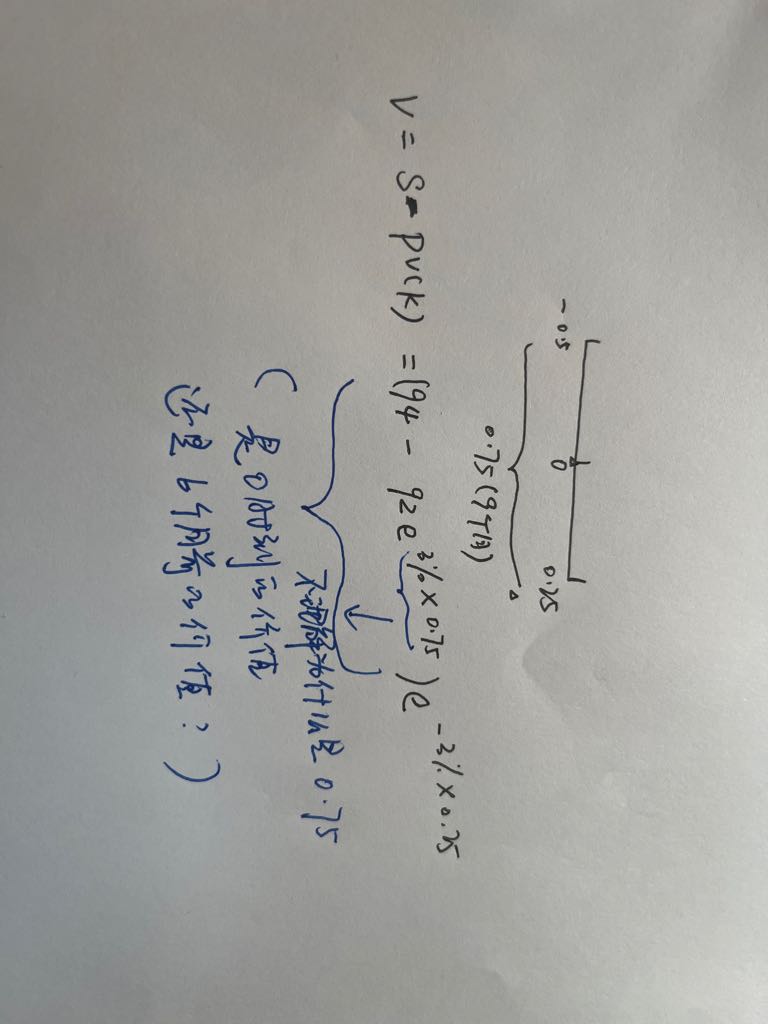 -0.5 0 0.25
0.75(9个月)
V = S - PV(K) = (94 - 92e^{3%×0.75})e^{-3%×0.25}
不理解为什么是0.75
(是0时刻的价值
还是6个月前的价值?)